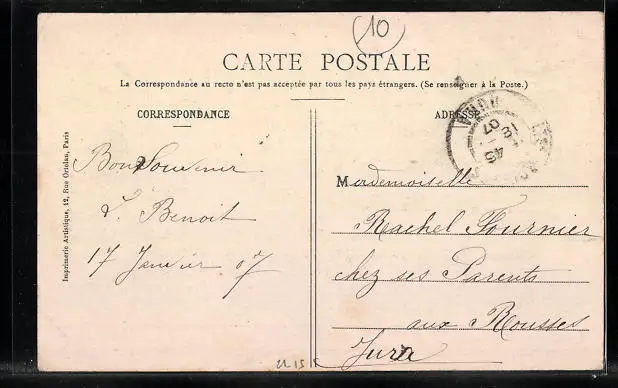 10
CARTE POSTALE
La Correspondance au recto n'est pas acceptée par tous les pays étrangers. (Se renseigner à la Poste.)
CORRESPONDANCE
ADRESSE
Imprimerie Artistique, 12, Rue Ortolan, Paris
Bon Souvenir
Benoit
17 Janvier 07
Mademoiselle
Rachel Fournier
chez ses Parents
aux Rousses
Jura
JURA
18
07